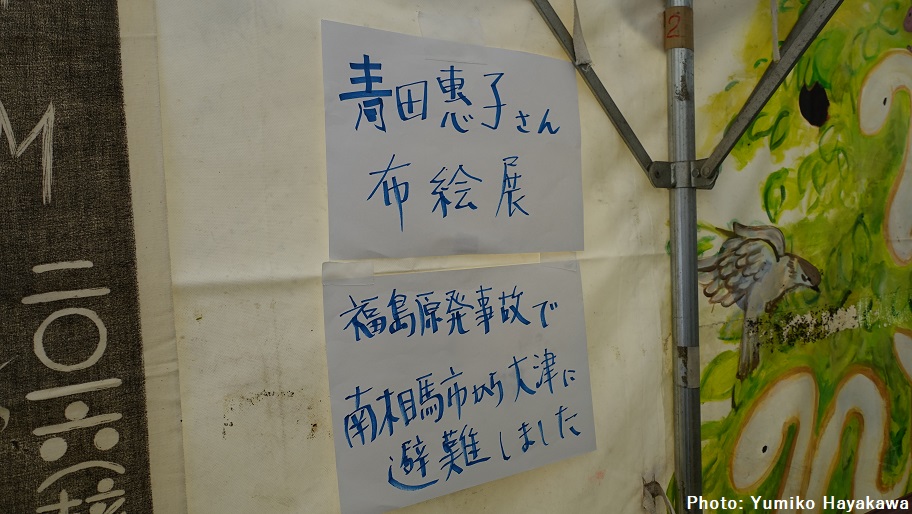 青田恵子さん
布絵展
福島原発事故で
南相馬市から大津に
避難しました
2
Photo: Yumiko Hayakawa